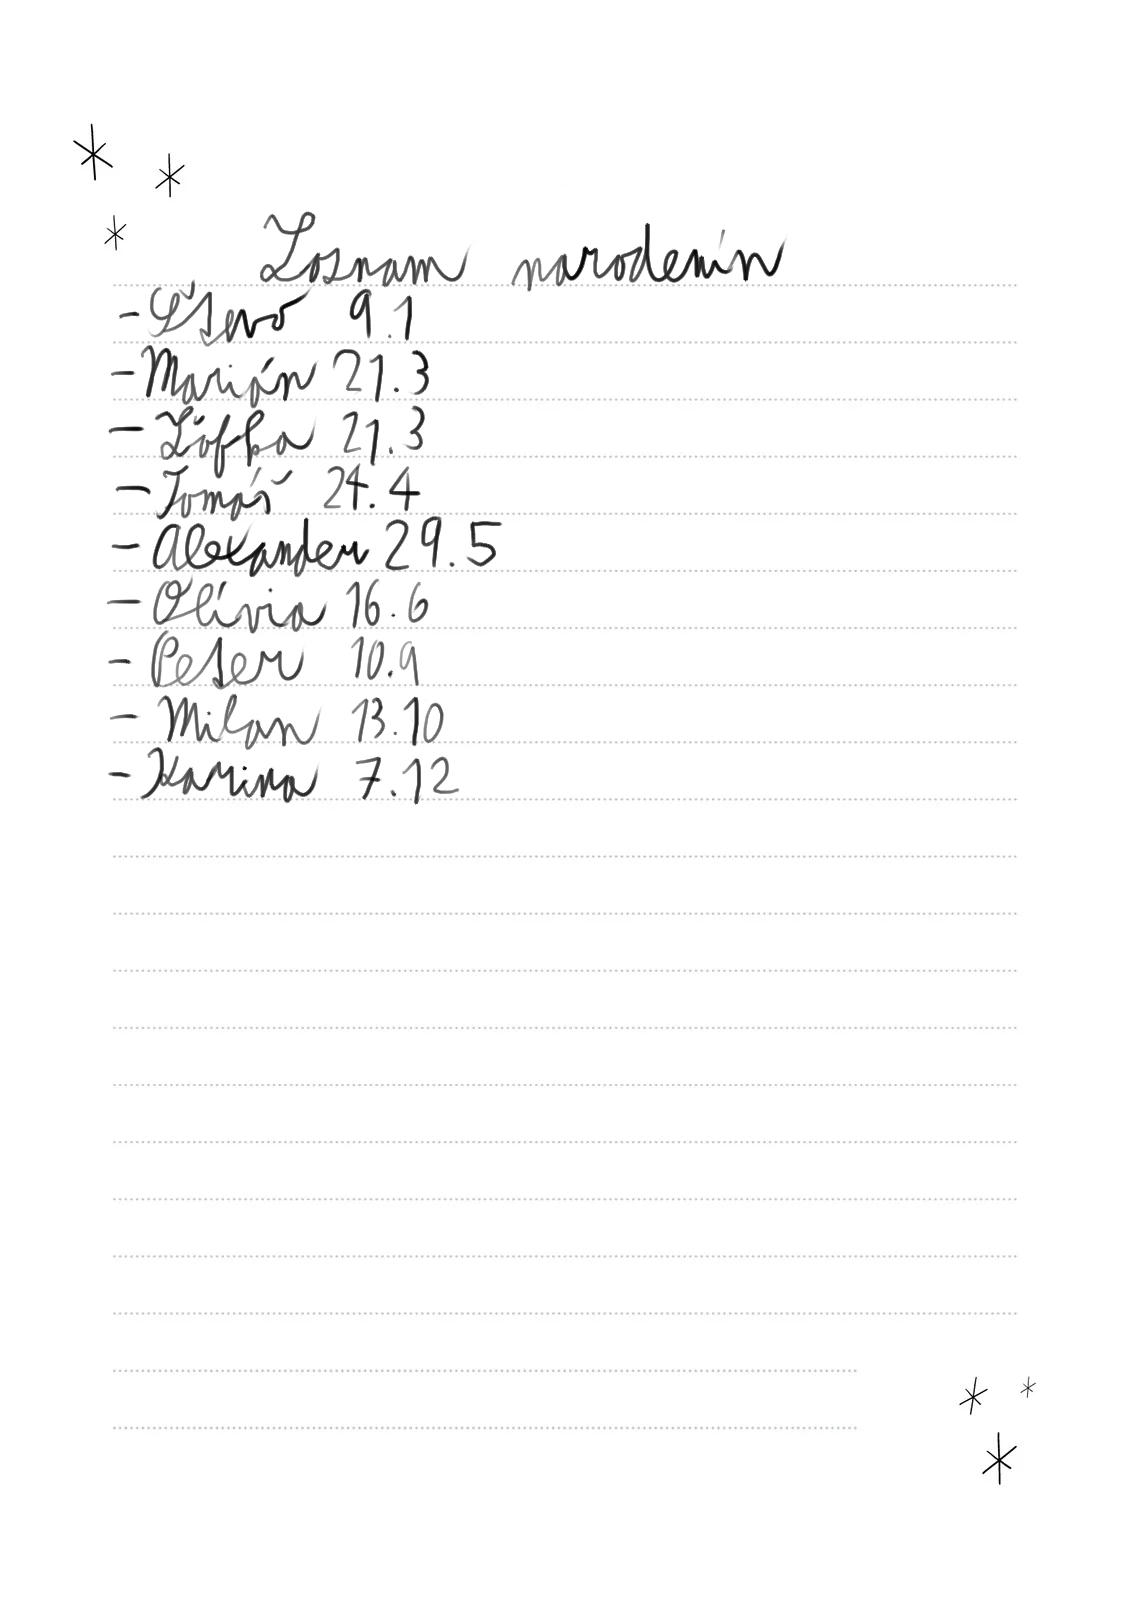 Zoznam narodenín
- Števo 9.1
- Marián 21.3
- Žofka 21.3
- Tomáš 24.4
- Alexander 29.5
- Olívia 16.6
- Peter 10.9
- Milan 13.10
- Karina 7.12